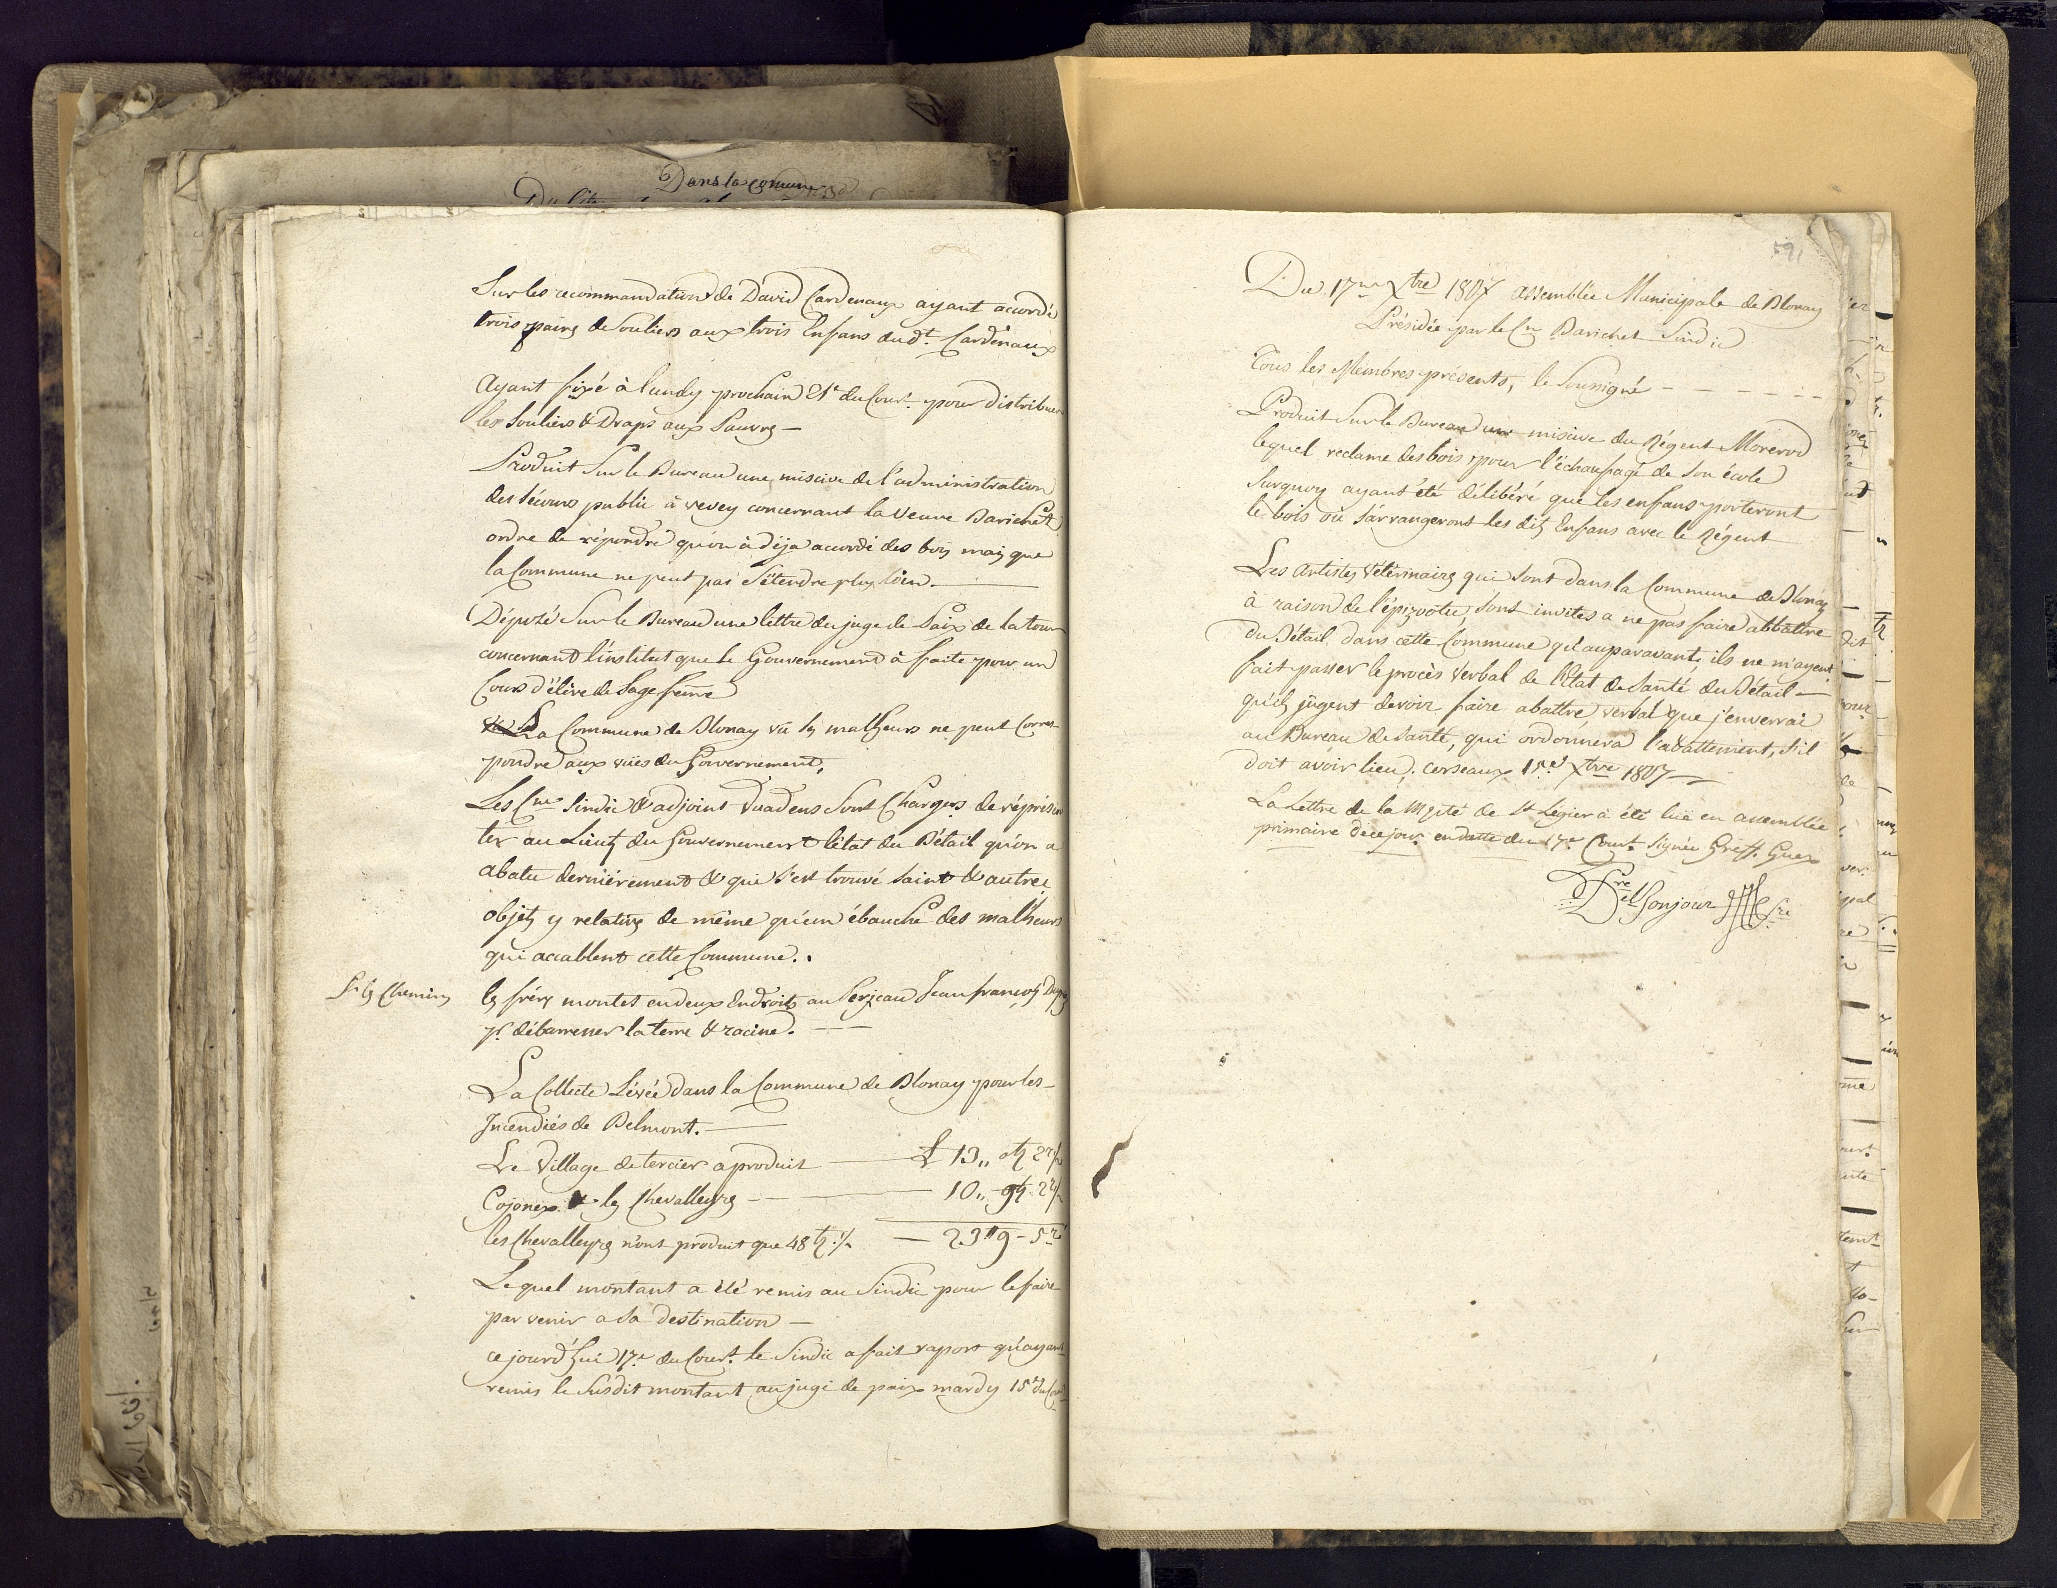 Dans la comune
Sur les recommandations de David Cardenaux ayant accordé
trois paires de Souliers aux trois Enfans dud.t Cardenaux
Ayant fixé à lundy prochain 21e du Cour.t pour distribuer
les Souliers & Draps aux Pauvres —
Produit Sur le Bureau une miscive de l'administration
des sécours public à vevey concernant la Veuve Barichet
ordre de répondre qu'on à déja accordé des bois mais que
la Commune ne peut pas S'étendre plus loin. —
Dépozé Sur le Bureau une lettre du juge de Paix de la tour
concernant l'institut que le Gouvernement à faite pour un
Cours d'élève de Sage feme
La Commune de Blonay vû les malheurs ne peut Corres
pondre aux vües du Gouvernement,
Les Cns Sindic & adjoint Duadens Sont Chargés de réprésen
ter au Lieut du Gouvernement l'état du Bétail qu'on a
abatu derniérement & qui S'est trouvé Saint & autres
objets y relatifs de même qu'un ébauche des malheurs
qui accablent cette Commune.
Sr les Chemins
les fréres montet en deux Endroits au Serjeau Jean françois
pr débarrasser la terre & racine. — —
La Collecte Lévée dans la Commune de Blonay pour les
Incendiés de Belmont. —
Le Village de tercier a produit — £ 13
Cojonex & les Chevalleyres — 10
les Chevalleyres n'ont produit que 48 — 23 " 9 - 5
Lequel montant a été remis au Sindic pour le faire
par venir a Sa destination —
ce jourd'hui 17e du Cour.t le Sindic a fait raport qu'ayant
remis le Susdit montant au juge de paix mardy 15e du Cour
591
Du 17me Xbre 1807 assemblée Municipale de Blonay
Présidée par le Cn Barichet Sindic
Tous les Membres présents, le Soussigné — — — — —
Produit Sur le Bureau une miscive du Régent Morerod
lequel reclame des bois pour l'échaufage de Son école
Surquoy ayant été délibéré que les enfans porteront
le bois où S'arrangeront les dits Enfans avec le Régent
Les Artistes Vétérinaires qui Sont dans la Commune de Blonay
à raison de l'épizootie, Sont invites a ne pas faire abbattre
du Bétail dans cette Commune qu'auparavant, ils ne m'ayent
fait passer le procès Verbal de l'Etat de Santé du Bétail —
qu'ils jugent devoir faire abattre, verbal que j'enverrai
au Bureau de Santé, qui ordonnera l'abattement, S'il
doit avoir lieu. Corseaux Xbre 1807 —
La Lettre de la Mpté de St Légier à été lüe en assemblée
primaire de ce jour en datte du 17e Cour.t Signée Greff. Guex
Bonjour